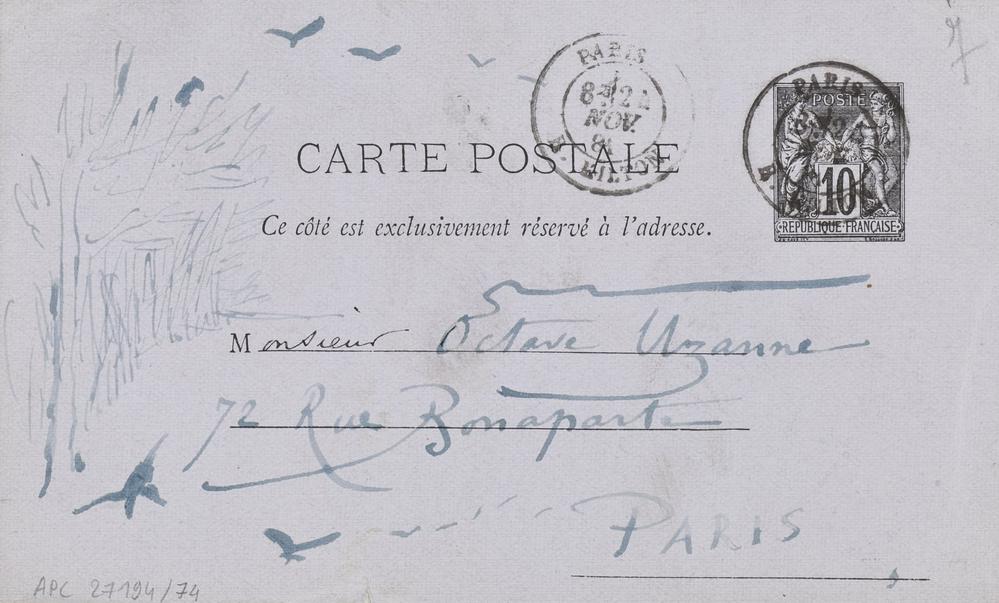 PARIS
8E 24
NOV.
R. MILTON
PARIS
POSTE
10
REPUBLIQUE FRANÇAISE
CARTE POSTALE
Ce côté est exclusivement réservé à l'adresse.
Monsieur Octave Uzanne
72 Rue Bonaparte
PARIS
APC 27194/74